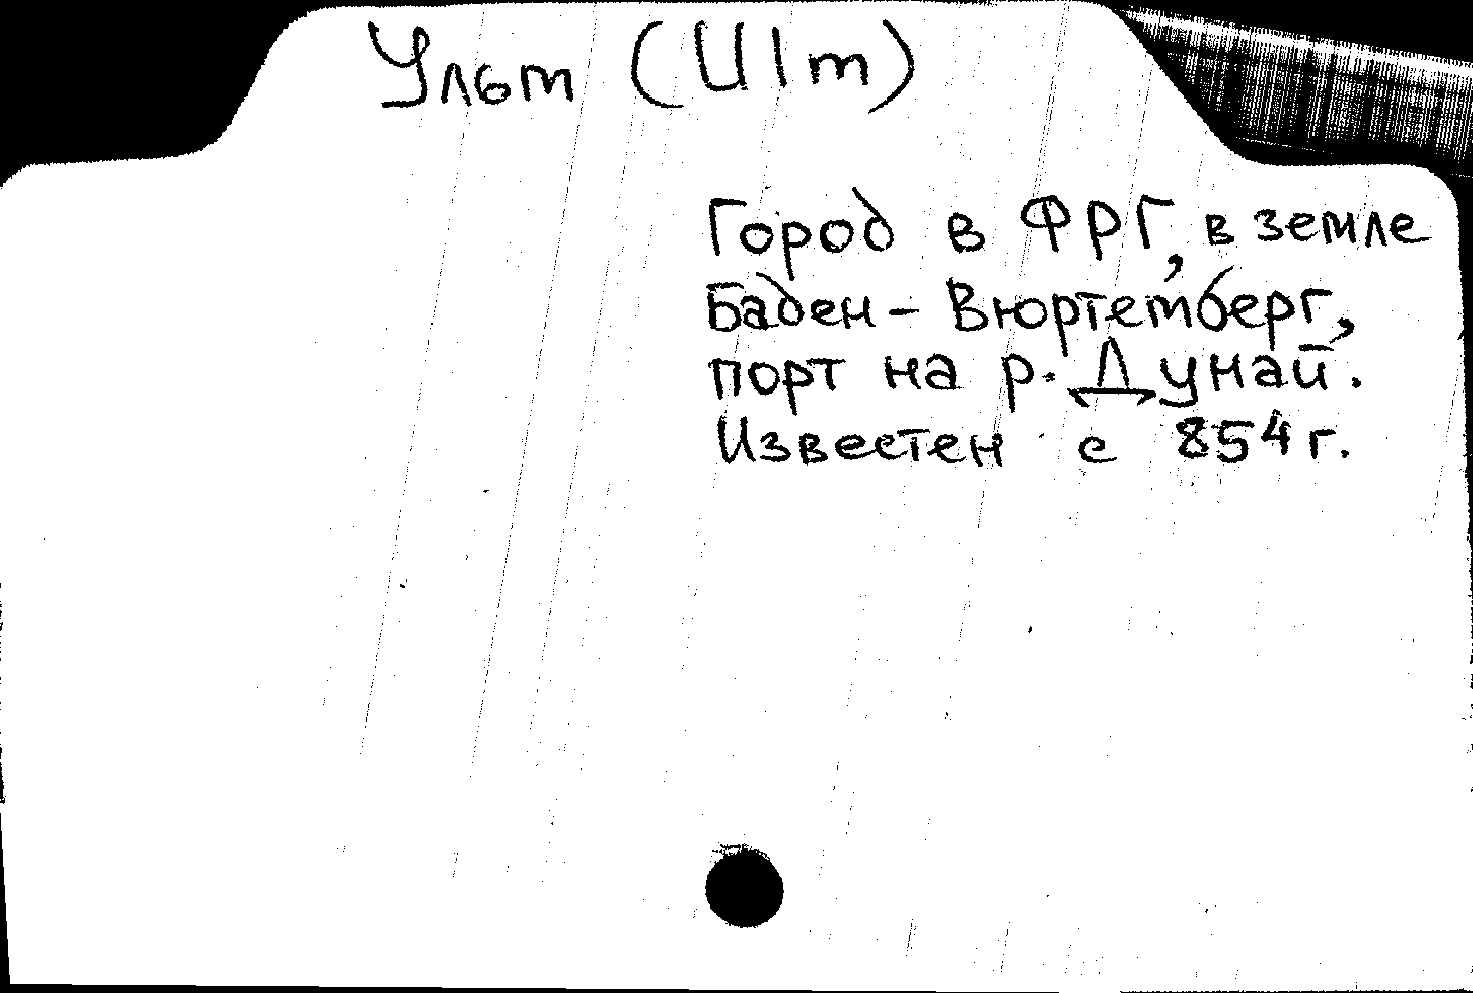 Ульм (Ulm)
Город в ФРГ, в земле
Баден - Вюртемберг,
порт на р. Дунай.
Известен с 854 г.